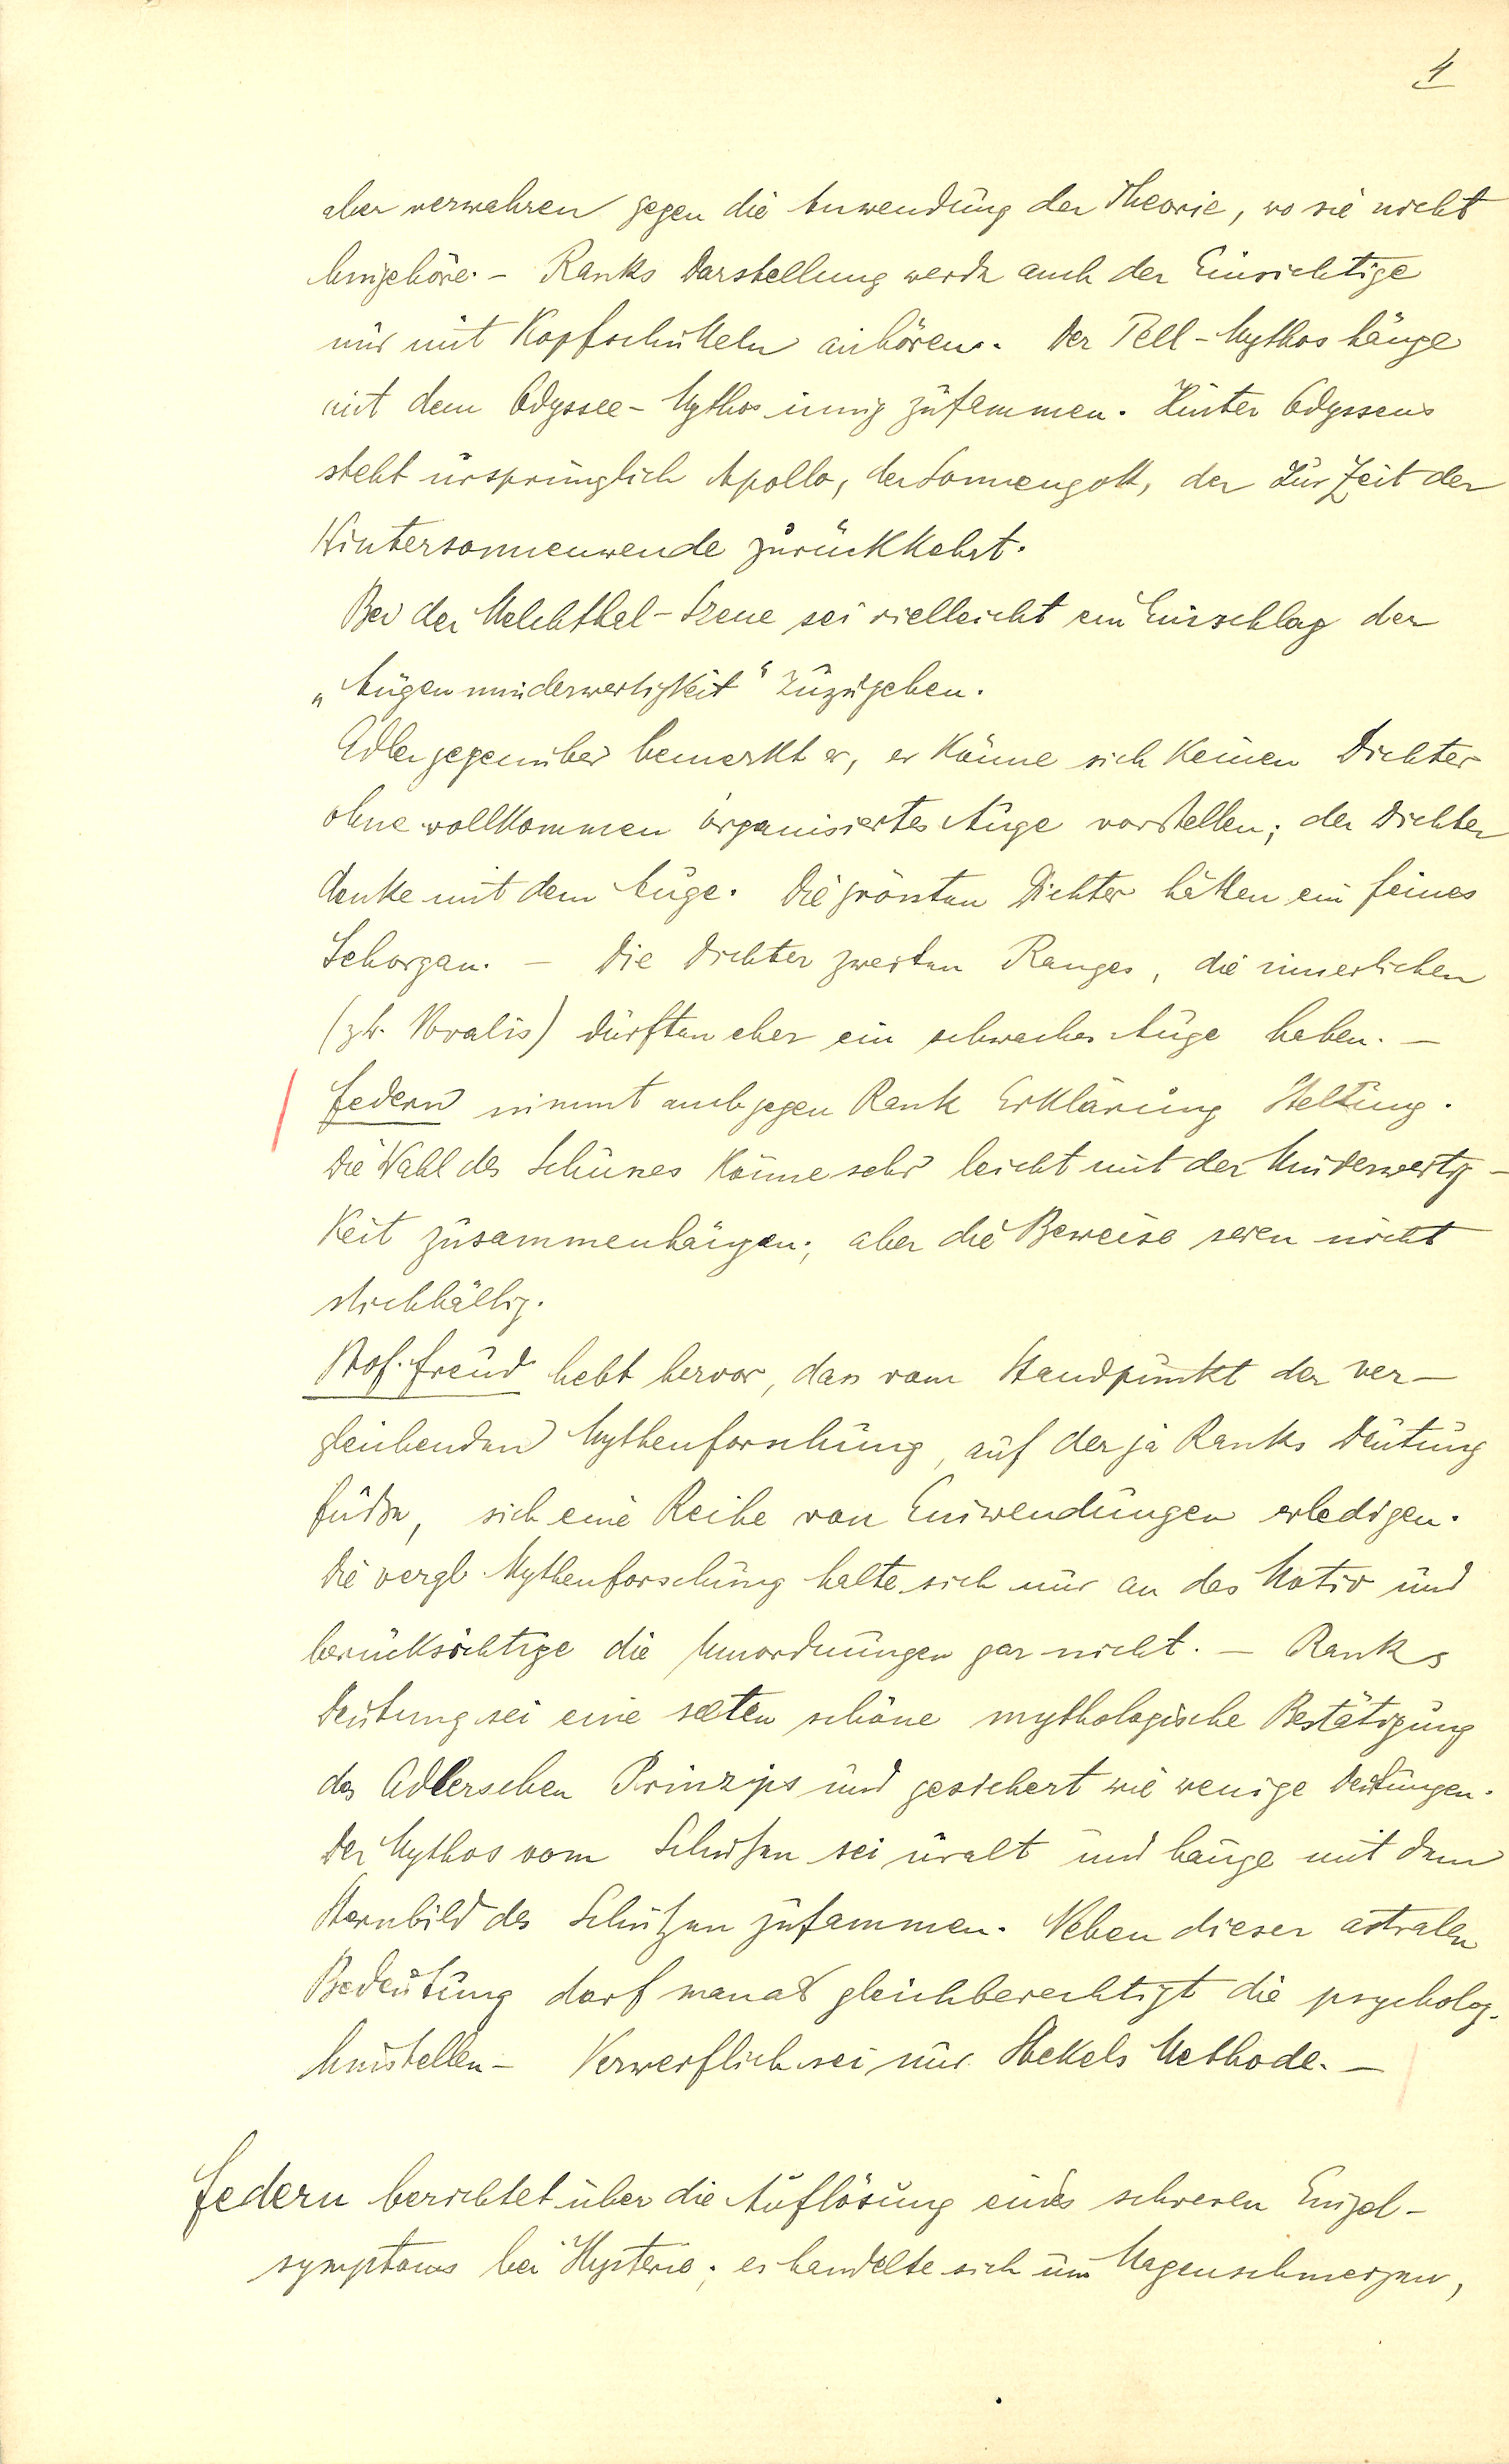 4
aber verwahren gegen die Anwendung der Theorie, wo sie nicht
hingehöre. – Ranks Darstellung werde auch der Einsichtige
nur mit Kopfschütteln anhören. Der Tell-Mythos hänge
mit dem Odyssee-Mythos innig zusammen. Hinter Odysseus
steht ursprünglich Apollo, der Sonnengott, der zur Zeit der
Wintersonnenwende zurückkehrt.
Bei der Melchthal-Szene sei vielleicht ein Einschlag der
„Augenminderwertigkeit“ zuzugeben.
Adler gegenüber bemerkt er, er könne sich keinen Dichter
ohne vollkommen organisiertes Auge vorstellen; der Dichter
denke mit dem Auge. Die grössten Dichter hätten ein feines
Sehorgan. – Die Dichter zweiten Ranges, die innerlichen
(zb. Novalis) dürften eher ein schwaches Auge haben. –
Federn nimmt auch gegen Rank Erklärung Stellung.
Die Wahl des Schusses könne sehr leicht mit der Minderwertig-
keit zusammenhängen; aber die Beweise seien nicht
stichhältig.
Prof. Freud hebt hervor, dass vom Standpunkt der ver-
gleichenden Mythenforschung, auf der ja Ranks Deutung
fuße, sich eine Reihe von Einwendungen erledigen.
Die vergl. Mythenforschung halte sich nur an das Motiv und
berücksichtige die Umordnungen gar nicht. – Ranks
Deutung sei eine selten schöne mythologische Bestätigung
des Adlerschen Prinzips und gesichert wie wenige Deutungen.
Der Mythos vom Schützen sei uralt und hänge mit dem
Sternbild des Schützen zusammen. Neben dieser astralen
Bedeutung darf man als gleichberechtigt die psycholog.
hinstellen – Verwerflich sei nur Stekels Methode. –
Federn berichtet über die Auflösung eines schweren Einzel-
symptoms bei Hysterie; es handelte sich um Magenschmerzen,